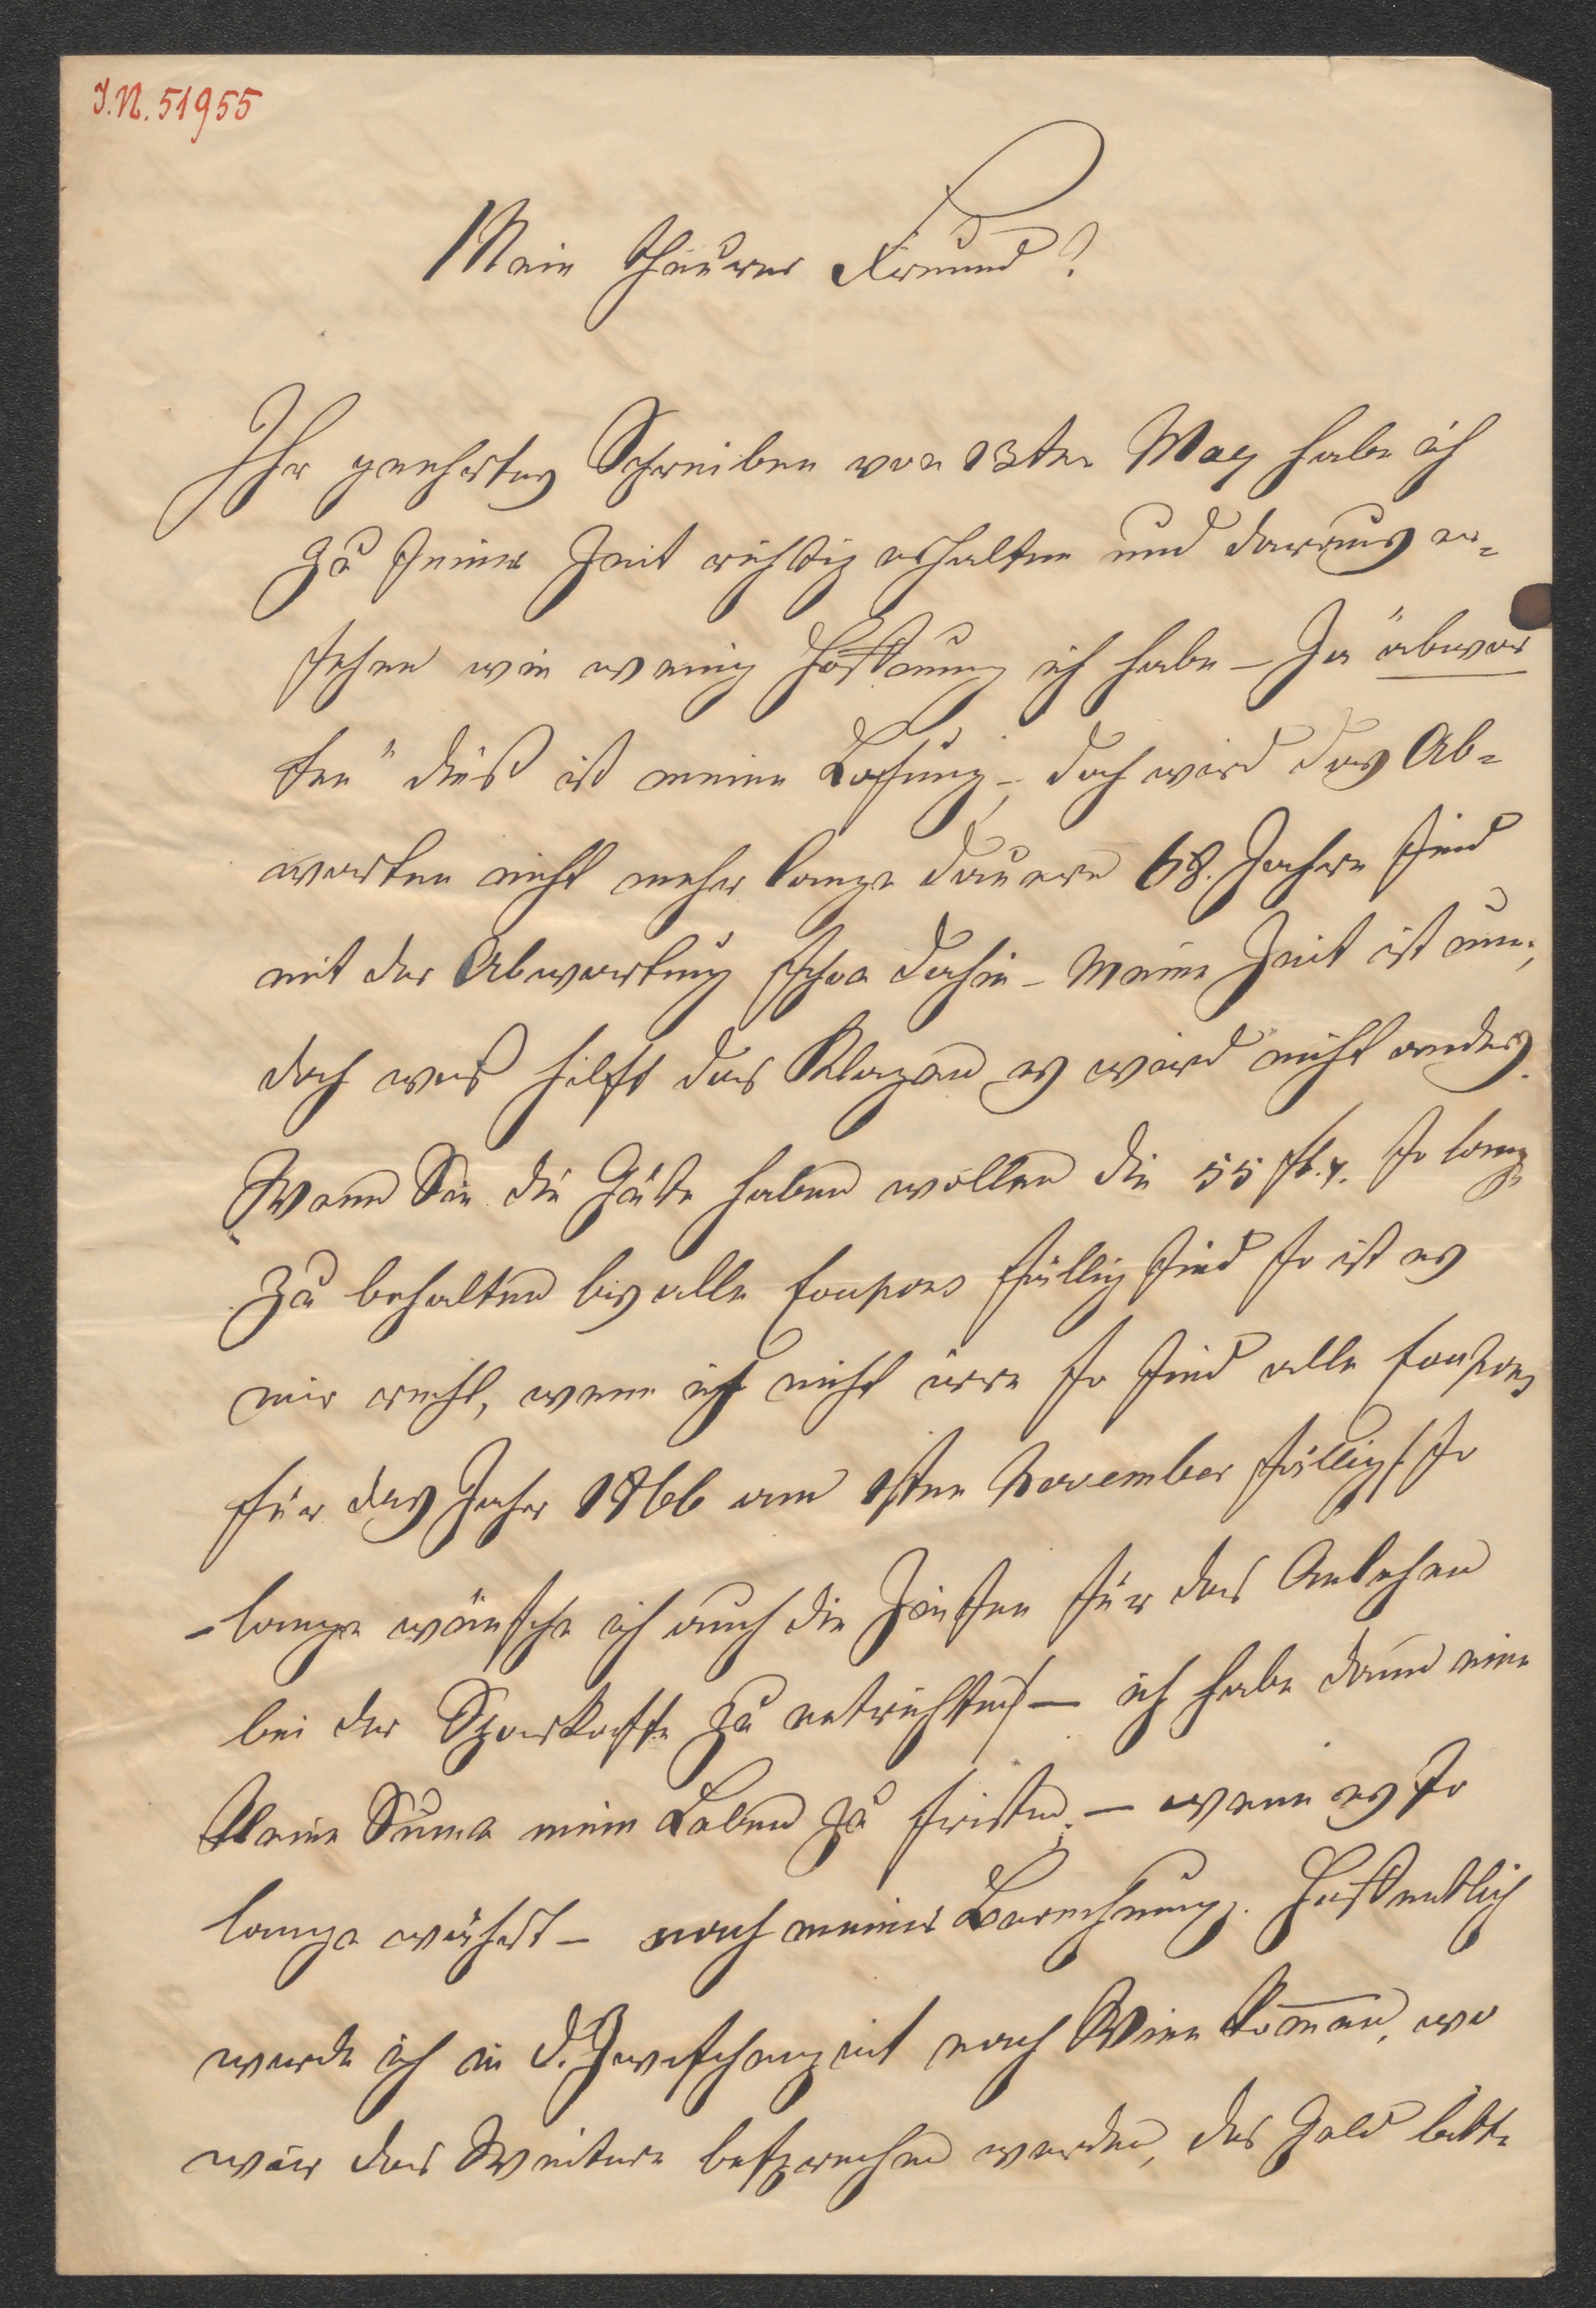 I.N. 51955
Mein theurer Freund?
Ihr geehrtes Schreiben von 13ten May habe ich
zu seiner Zeit richtig erhalten und daraus er-
sehen wie wenig Hoffnung ich habe – Ja "abwar
ten" dieß ist meine Losung –, doch wird das Ab-
warten nicht mehr lange dauern 68. Jahre sind
mit der Abwartung schon dahin – meine Zeit ist um;
doch was hilft das Klagen es wird nicht anders.
Wenn Sie die Güte haben wollen die 55 fl. so lang
zu behalten bis alle Coupons fällig sind so ist es
mir recht, wenn ich nicht irre so sind alle Coupons
für das Jahr 1866 am 1sten November fällig /: so
lange wünsche ich auch die Zinsen für das Anlehen
bei der Sparkasse zu entrichten :/ – ich habe dann eine
kleine Suma mein Leben zu fristen. – wenn es so
lange währt – nach meiner Berechnung. Hoffentlich
werde ich in d. Zwischenzeit nach Wien kommen, wo
wir das Weitere besprechen werden, das Geld bitte